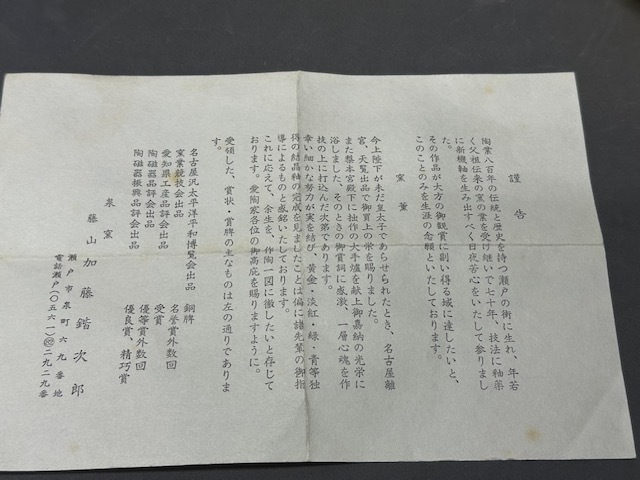 謹告
陶業八百年の伝統と歴史を持つ瀬戸の街に生れ、年若
く父祖伝来の窯の業を受け継いで七十年、技法に釉薬
に新機軸を生み出すべく日夜苦心をいたして参りまし
た。
その作品が大方の御観賞に副い得る域に達したいと、
このことのみを生涯の念願といたしております。
窯菫
今上陛下が未だ皇太子であらせられたとき、名古屋離
宮、天覧出品で御買上の栄を賜りました。
また梨本宮殿下に拙作の大手爐を献上御嘉納の光栄に
浴しました、そのときの御賞詞に感激、一層心魂を作
技の上に打込んだ次第であります。
幸い細かな努力が実を結び、黄金・淡紅・緑・青等独
得の結晶釉の完成を見ましたことは偏に諸先輩の御指
導によるものと感銘いたしております。
これに応えて、余生を、作陶一図に徹したいと存じて
おります。愛陶家各位の御高庇を賜りますように。
受領した、賞状・賞牌の主なものは左の通りでありま
す。
名古屋汎太平洋平和博覧会出品 銅牌
窯業競技会出品 名誉賞外数回
愛知県工産品評会出品 受賞
陶磁器品評会出品 優等賞外数回
陶磁器振興品評会出品 優良賞、精巧賞
泉窯
藤山 加藤鍇次郎
瀬戸市泉町六九番地
電話瀬戸〇五六一(82)二九二九番